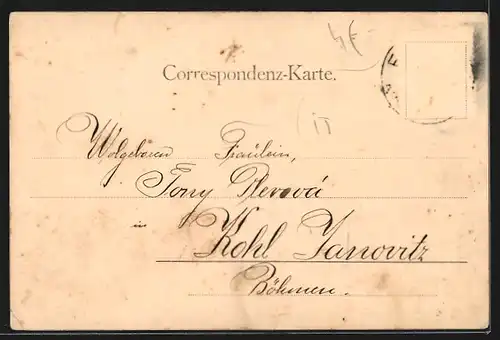 Correspondenz-Karte.
Wolgeboren Fräulein,
Tony
in
Kohl Janovitz
Böhmen.